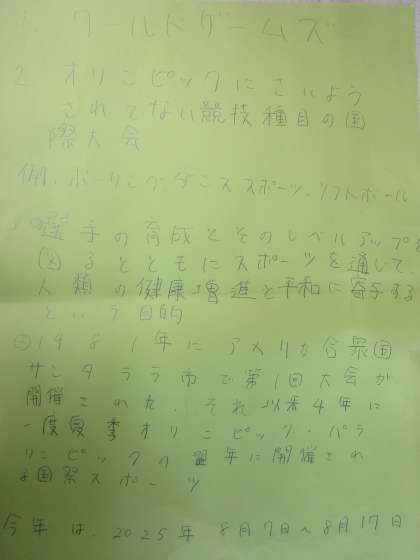 1. ワールドゲームズ
2 オリンピックにさいよう
されてない競技種目の国
際大会
例.ボーリング.ダンススポーツ.ソフトボール
選手の育成とそのレベルアップを
図るとともにスポーツを通して
人類の健康増進と平和に寄与する
という目的
②1981年にアメリカ合衆国
サンタララ市で第1回大会が
開催された.それ以来4年に
一度夏季オリンピック・パラ
リンピックの翌年に開催され
る国祭スポーツ
今年は.2025年8月7日~8月17日